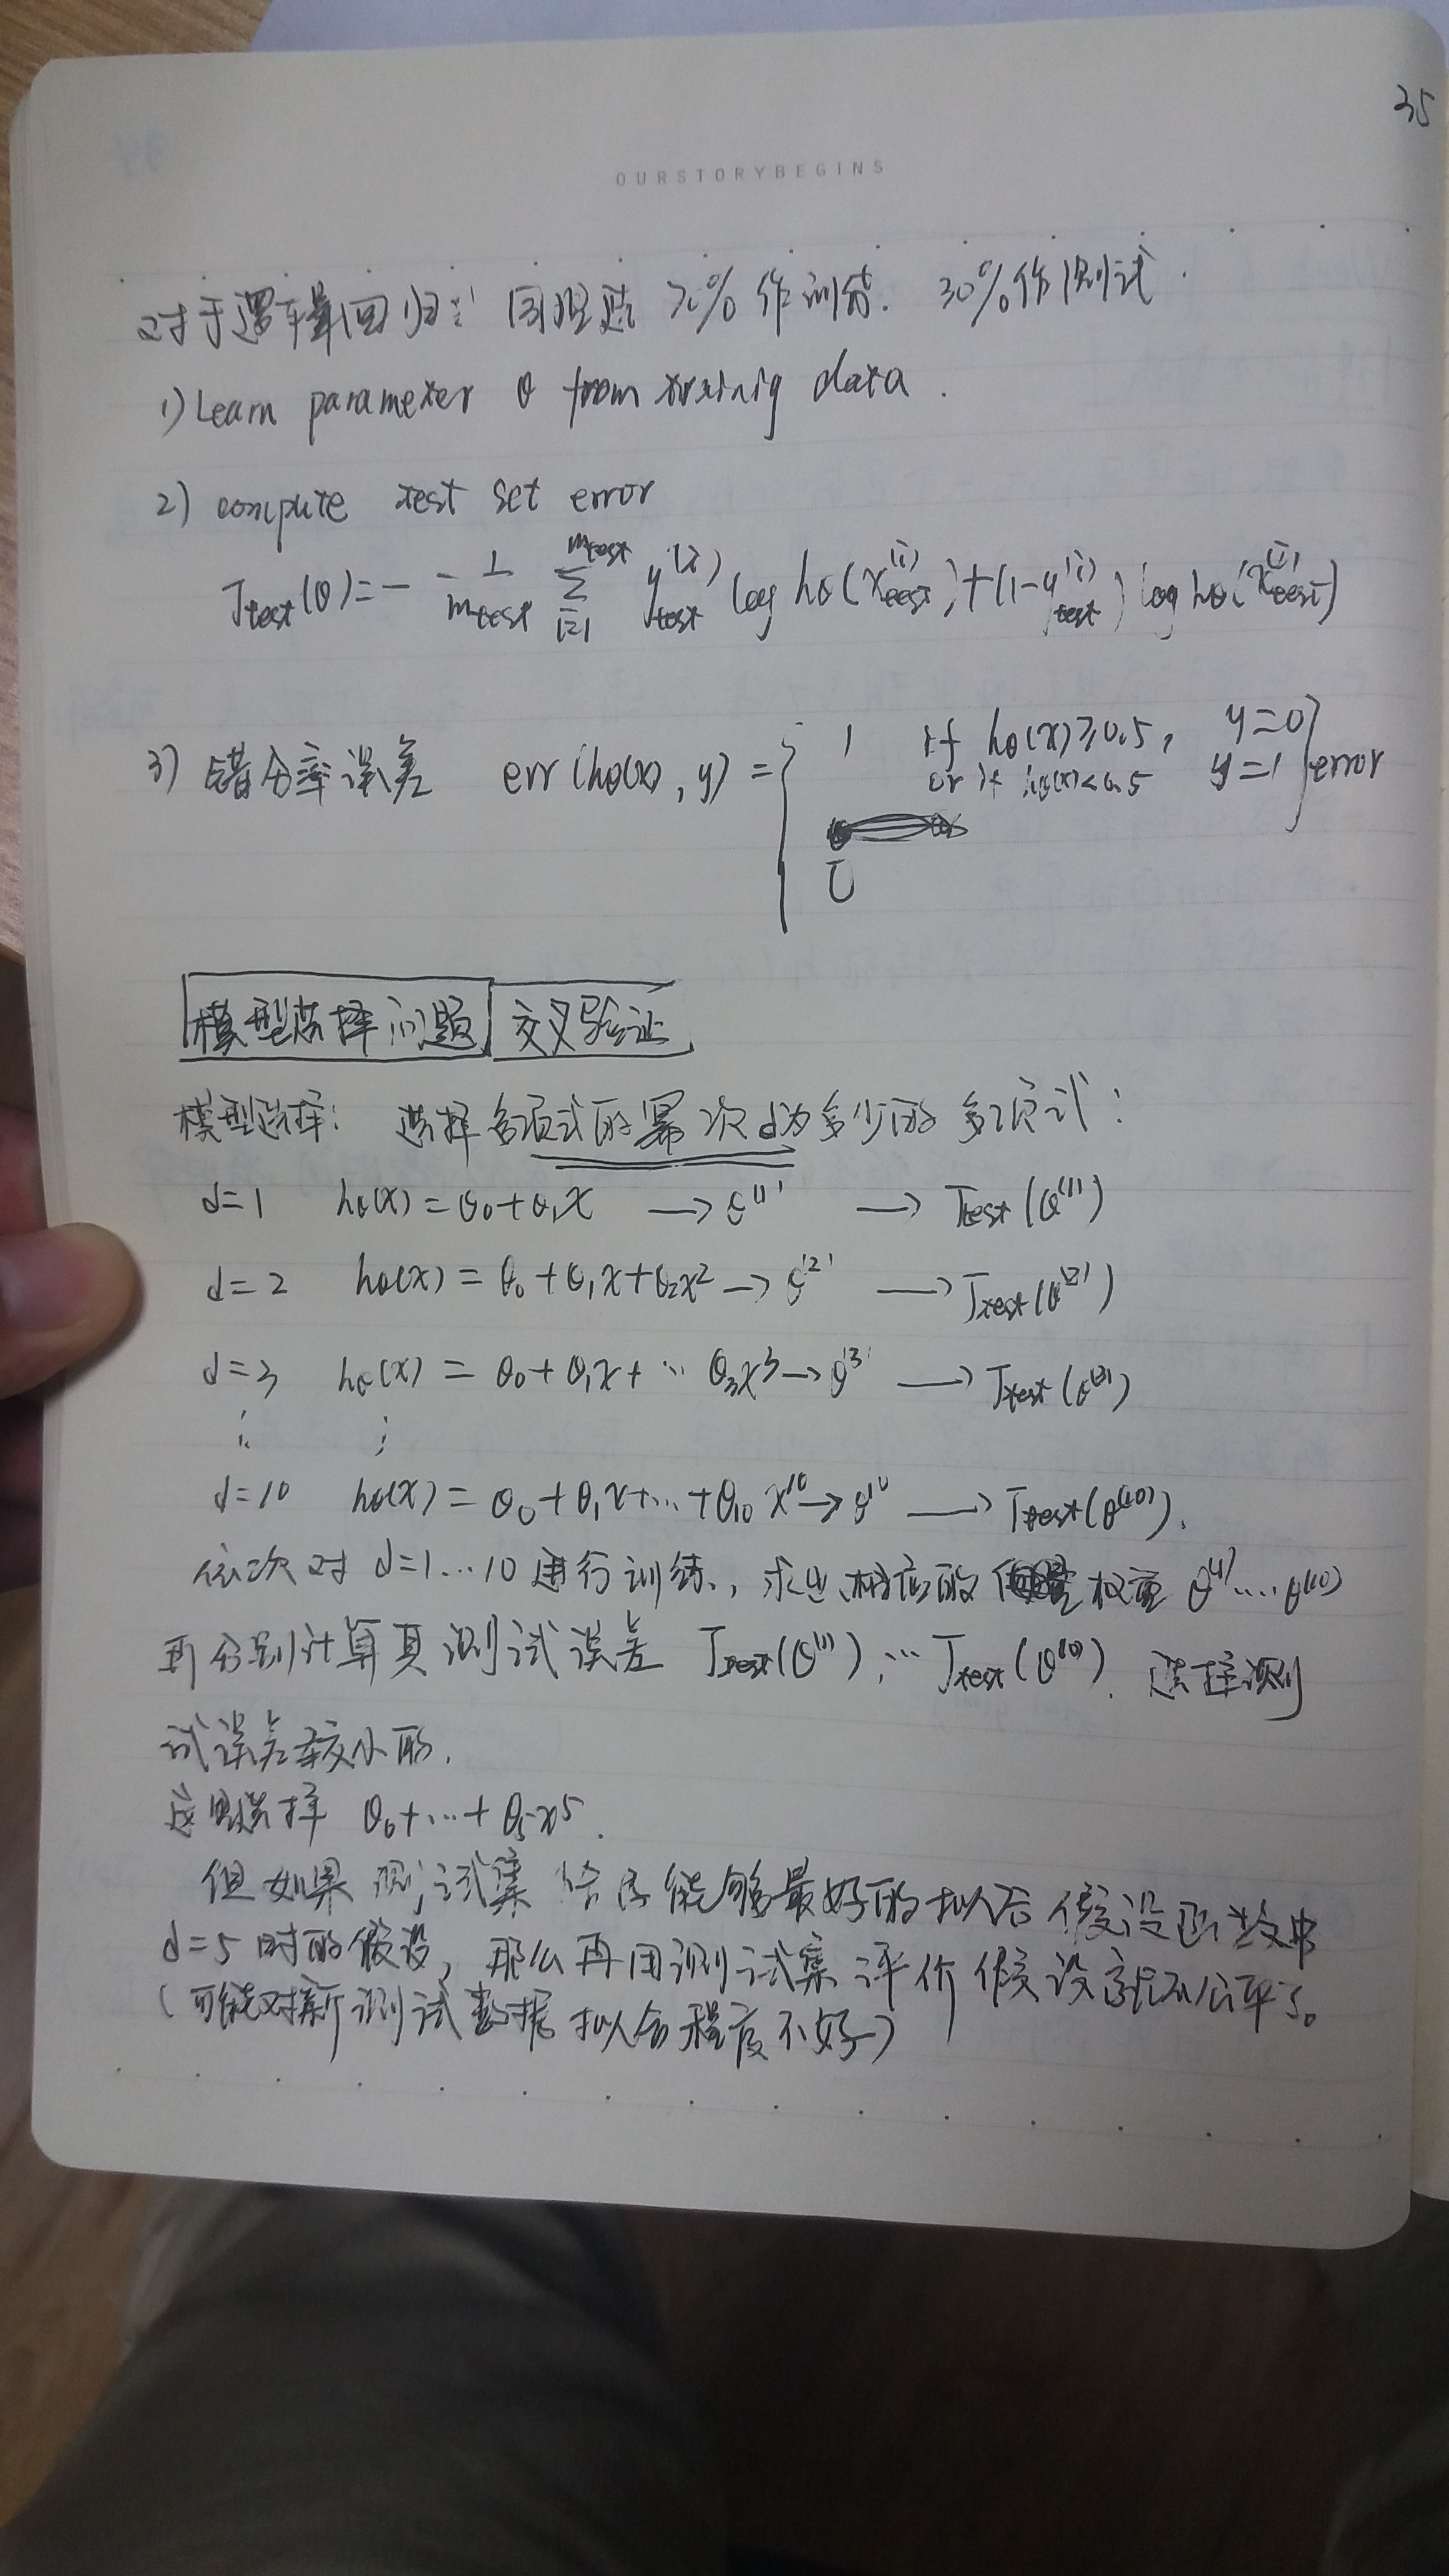 35
OURSTORYBEGINS
对于逻辑回归: 同理选 70% 作训练. 30%作测试.
1) Learn parameter θ from trainig data.
2) compute test set error
J_test(θ) = - 1/m_test Σ_{i=1}^{m_test} y_test^(i) log hθ(x_test^(i)) + (1-y_test^(i)) log hθ(x_test^(i))
3) 错分率误差 err(hθ(x), y) = { 1 if hθ(x)≥0.5, y=0
or if hθ(x)<0.5 y=1 } error
0
模型选择问题 交叉验证
模型选择: 选择多项式的幂次d为多少的多项式:
d=1 hθ(x) = θ₀+θ₁x → θ^(1) → J_test(θ^(1))
d=2 hθ(x) = θ₀+θ₁x+θ₂x² → θ^(2) → J_test(θ^(2))
d=3 hθ(x) = θ₀+θ₁x+ ·· θ₃x³ → θ^(3) → J_test(θ^(3))
⋮ ⋮
d=10 hθ(x) = θ₀+θ₁x+…+θ₁₀x¹⁰ → θ^10 → J_test(θ^(10)).
依次对 d=1…10 进行训练, 求出相应的 权重 θ^(1)….θ^(10)
再分别计算其测试误差 J_test(θ^(1)),…J_test(θ^(10)). 选择测
试误差较小的.
这里选择 θ₀+…+θ₅x⁵.
但如果测试集 能够最好的拟合假设 d=5时的假设, 那么再用测试集评价假设就不公平了。
(可能对新测试数据拟合程度不好)